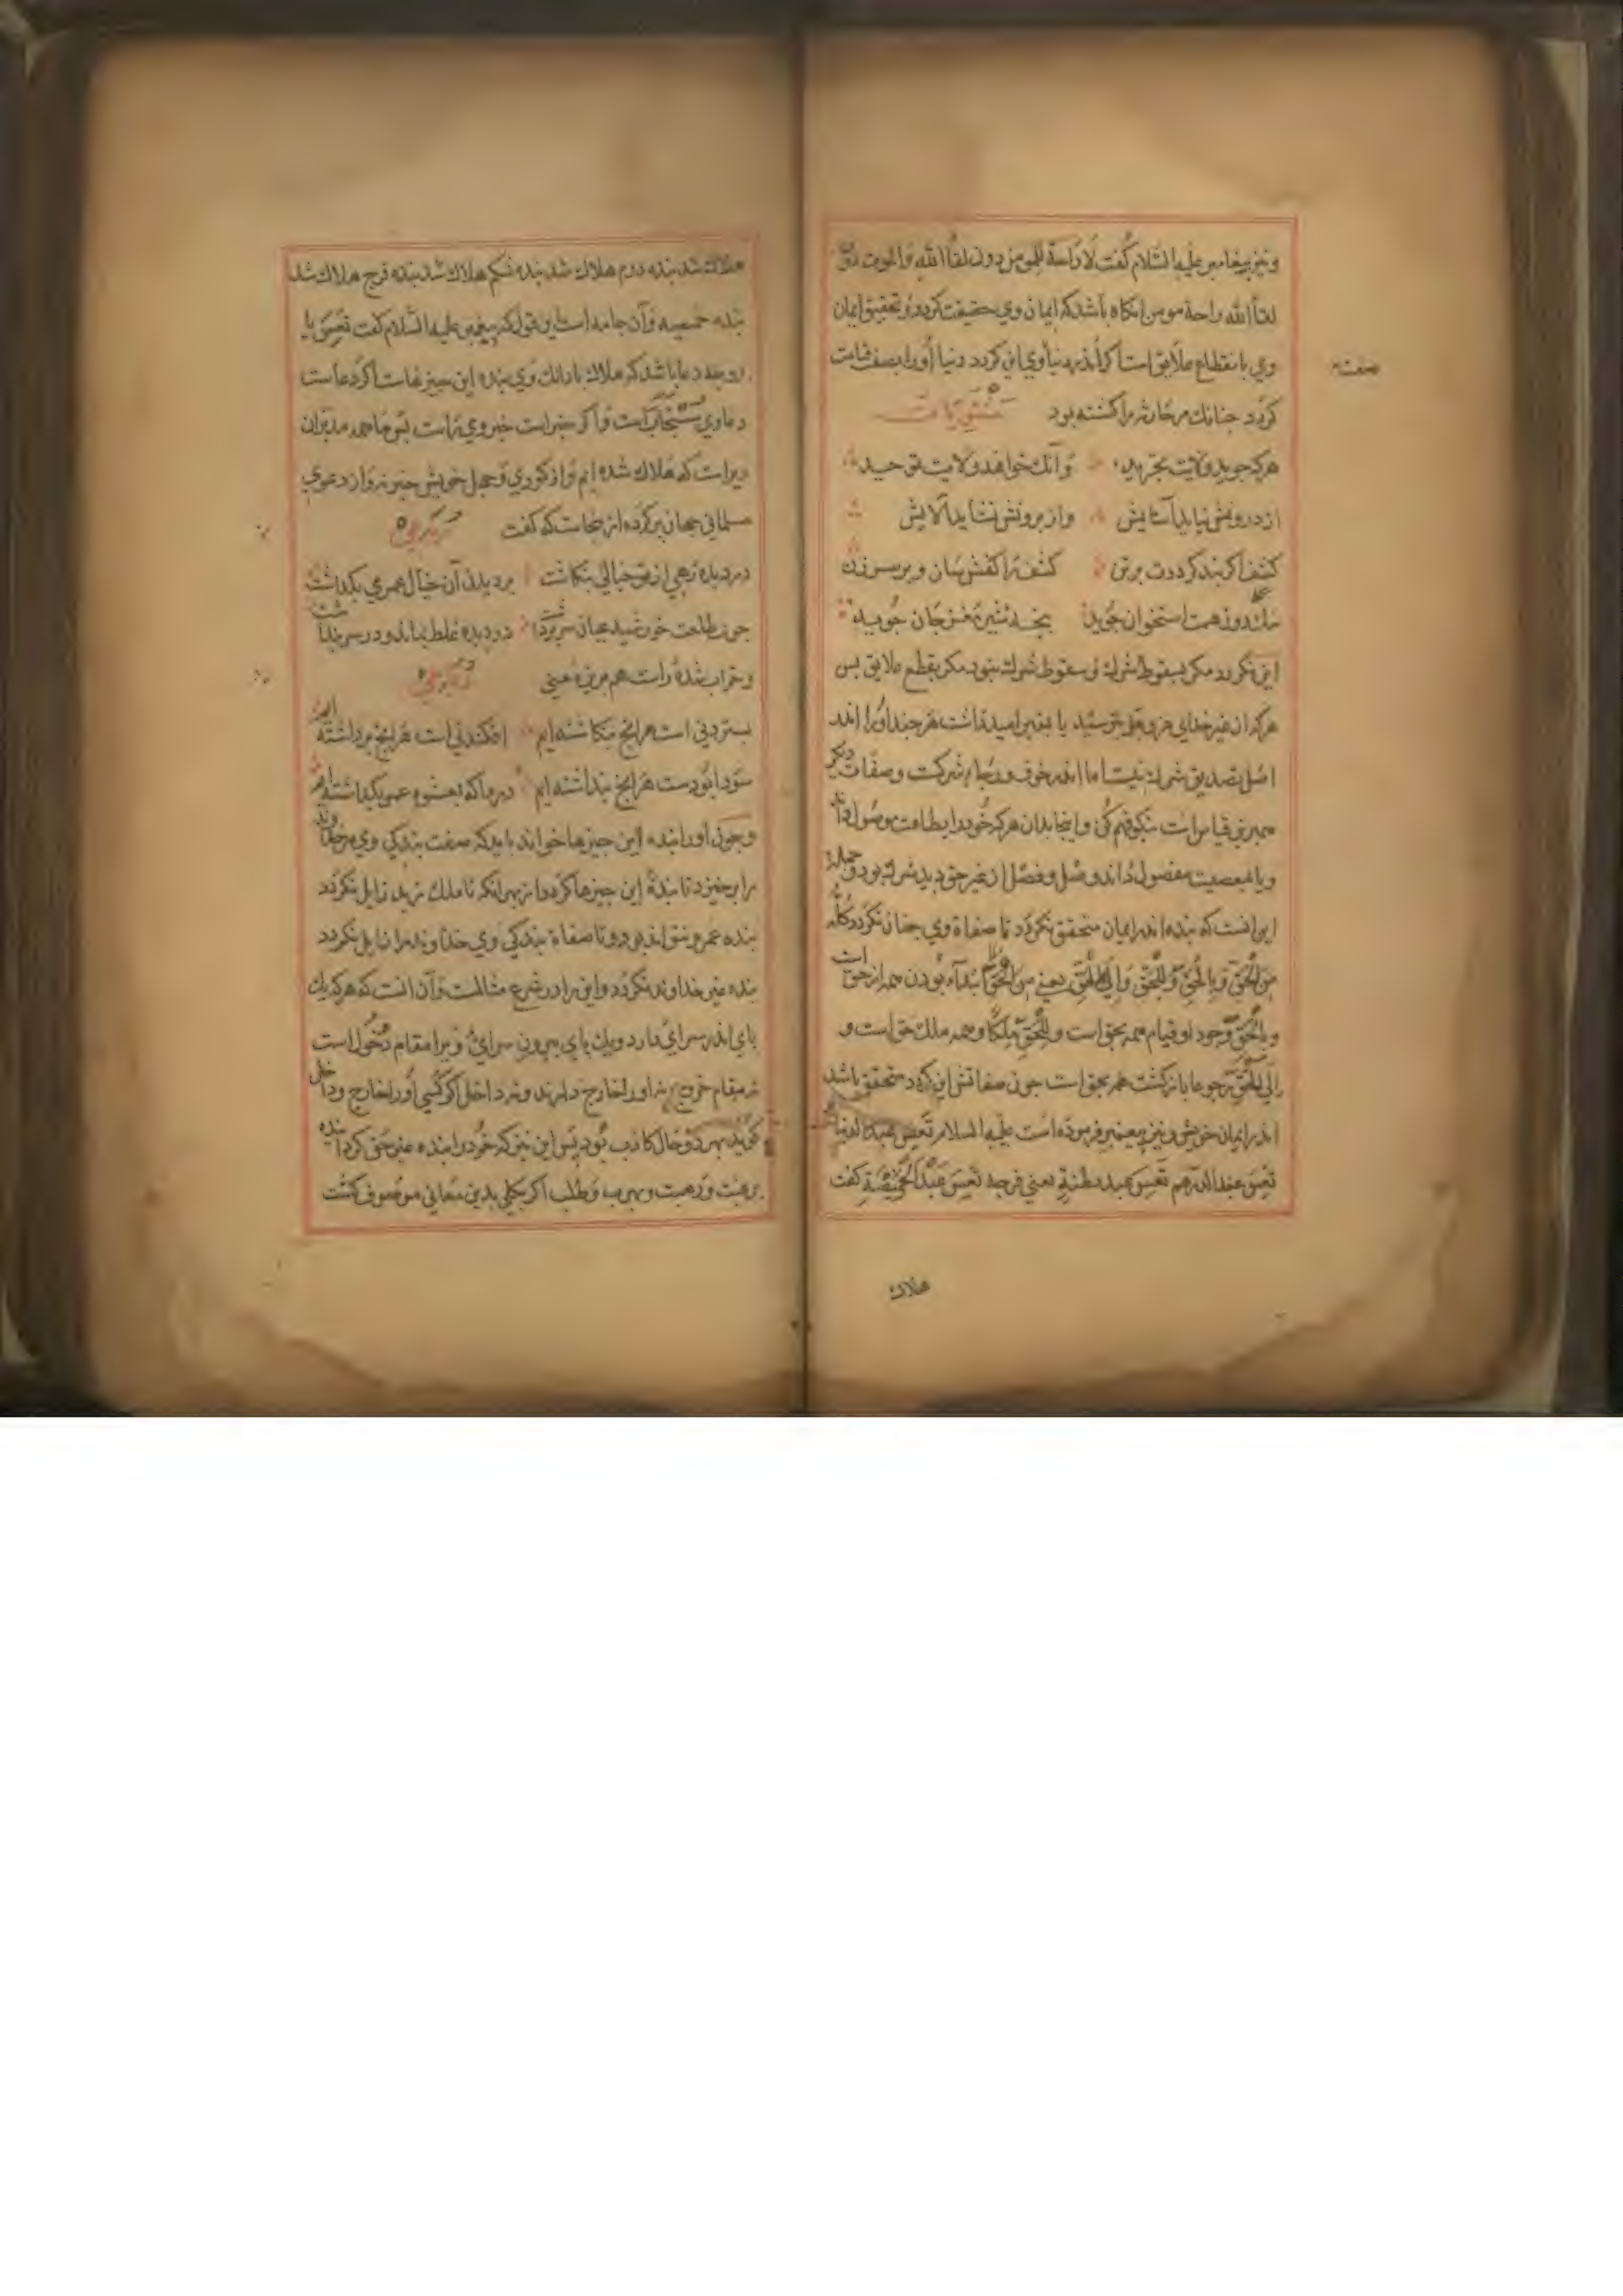 و نیز پیغامبر علیه السّلام کُفت لَا رَاحة للمؤمن دون لقآالله وَالموت دون
لقآ الله راحة مومن انکاه باشد که ایمان وی حقیقت کردد و تحقیق ایمان
وی بانقطاع علایق است اکر اندر دنیا وی این کردد دنیا اورا بصفت قیامت
صفت
کردد جنانك مر حارثه را کشته بود
هرکه جوید ولایت تجرید وَآنك خواهد ولایت توحید
از درونش نیاید آسایش وز برونش نشاید آلایش
کشف اکر بند کرددت بر تن کشف را کفش سان و بر سر زن
سك دون همت استخوان جُوید بجۀ شیر مغز جان جُوید
این نکردد مکر بسقوط شرك و سقوط شرك نبود مکر بقطع علایق بس
هرکه از غیر خدای عز وجل بترسید یا بغیر امید داشت هر جند اورا اندر
اصل تصدیق شرك نیست اما اندر خوف و رجا شرکت و صفات دیکر
همبرین قیاس است نیکو فهم کن و اینجا بدان هرکه خُود را بطاعت موصُول داند
و یا بمعصیت مفصول دَاند وصل و فصل از غیر حق دید شرك بود و جملۀ
این انست که بنده اندر ایمان متحقق نکردد تا صفاة وی جنان نکردد کُلّه
مِنَ الْحَقّ وَ بِالْحَقّ وَ لِلْحَقّ وَ اِلَی الْحَقّ یعنی مِنَ الْحَقّ ابتدآء بُودن همه از حق است
و بِالْحَقّ وجود او قیام همه بحق است و لِلْحَقّ مِلْکًا و همه ملك حق است و
اِلَی الْحَقّ رجوعا بازکشت همه بحق است جون صفاتش این کردد متحقق باشد
اندر ایمان خویش و نیز پیغمبر فرموده است علیه السلام تَعِسَ عبد الدنیا
تعِسَ عبد الدرهم تَعِسَ عبد بطنهِ تعِس فرجه تعِسَ عَبْدُ الْخَمِیْصَةِ کفت
هلاك
هلاك شد بنده درم هلاك شد بنده شکم هلاك شد بنده فرج هلاك شد
بنده خمیصه وَآن جامه است و بقول که پیغمبر علیه السّلام کفت تعِسَ یا
دعا باشد که هلاك باد انك وی بنده این جیزهاست اکر دعا است
دعا وی مستجاب است و اکر خبر است خبر وی راست بس ما همه مدبران
دیراست که هَلاك شده ایم و از کوری و جهل خویش خبر نه و از دعوی
مسلمانی جهان بر کرده از ینجاست که کفت
در دیده رهی از تو خیالی بنکاشت بر دیدن آن خیال عمری بکذاشت
جون طلعت خورشید عیان سر برداشت در دیده غلط بماند و در سر بنداشت
و خراب شده راست هم برین معنی
بستردنی است هر انج بنکاشته ایم افکندنی است هر انج برداشته ایم
سَودا بُودست هر انج بنداشته ایم دردا که بعشوه عمر بکذاشته ایم
و جون اورا بنده این جیزها خواند باید که صفت بندکی وی مر خداوند
را برخیزد تا بندۀ این جیزها کردد از بهر انکه تا ملك زید زایل نکردد
بنده عمرو نتواند بود و تا صفاة بندکی وی خداوند را زایل نکردد
بنده غیر خداوند نکردد و این را در شرع مثالست و آن انست که هرکه یك
بای اندر سرای دارد و یك بای بیرون سرای و یرا مقام دخول است
نه مقام خروج نه اورا خارج دارند و نه داخل اکو کسی اورا خارج و داخل
کوید بهر دو حال کاذب بُود بس این نیز که خُود را بنده غیر حق کرداند
برهبت و رغبت و بهرب و طلب اکر بکلی بدین معانی موصوف کشت